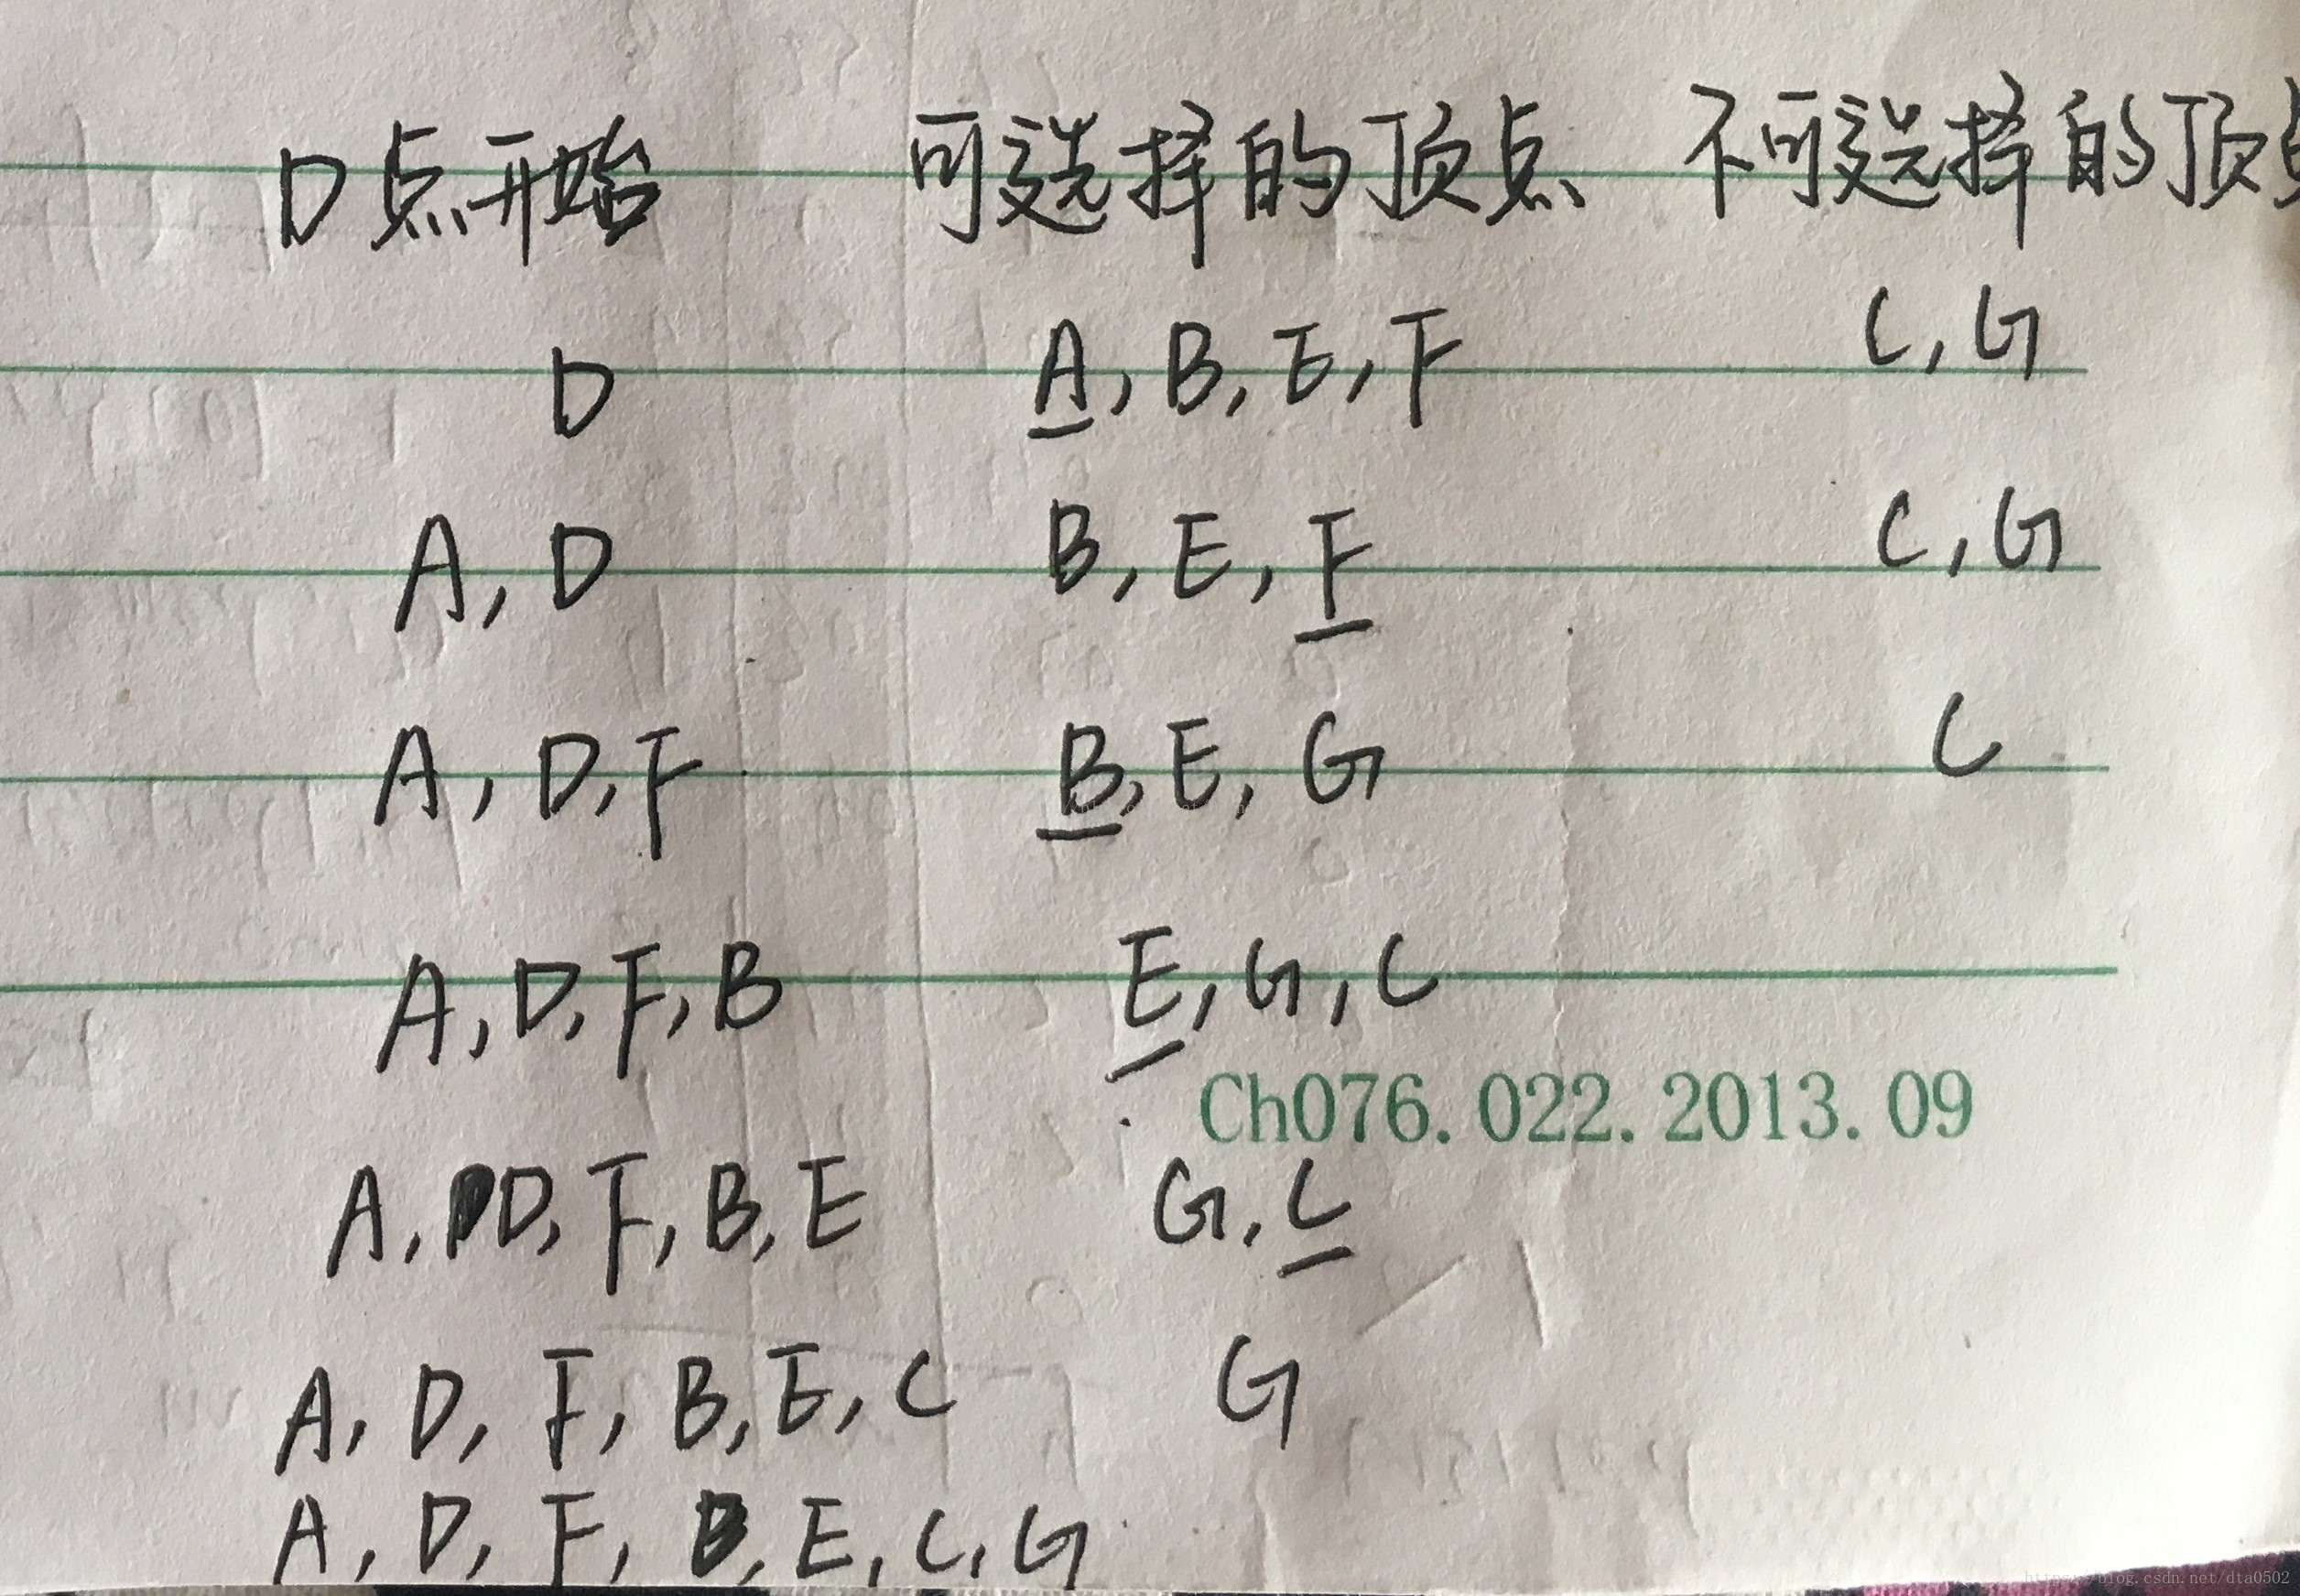 D点开始 可选择的顶点 不可选择的顶点
D A, B, E, F C, G
A, D B, E, F C, G
A, D, F B, E, G C
A, D, F, B E, G, C
Ch076.022.2013.09
A, D, F, B, E G, C
A, D, F, B, E, C G
A, D, F, B, E, C, G
https://blog.csdn.net/dta0502